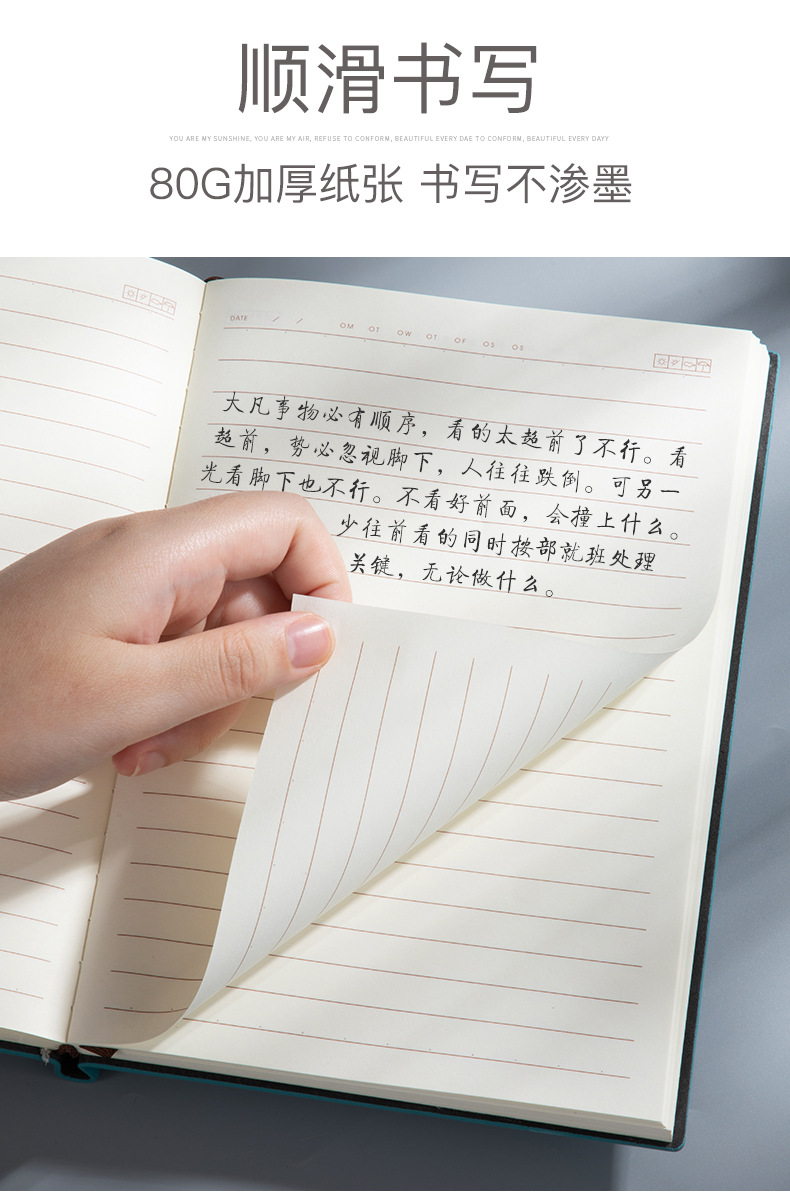 顺滑书写
YOU ARE MY SUNSHINE, YOU ARE MY AIR, REFUSE TO CONFORM, BEAUTIFUL EVERY DAE TO CONFORM, BEAUTIFUL EVERY DAYY
80G加厚纸张 书写不渗墨
DATE / / OM OT OW OT OF OS OS
大凡事物必有顺序，看的太超前了不行。看
超前，势必忽视脚下，人往往跌倒。可另一
光看脚下也不行。不看好前面，会撞上什么。
少往前看的同时按部就班处理
关键，无论做什么。